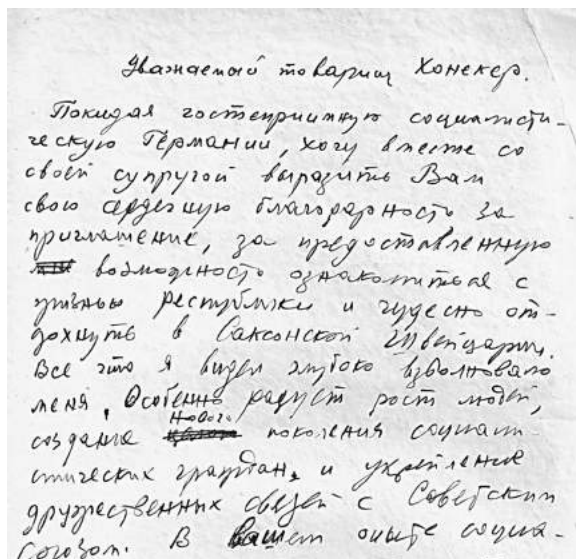 Уважаемый товарищ Хонекер.
Покидая гостеприимную социалисти-
ческую Германии, хочу вместе со
своей супругой выразить Вам
свою сердечную благодарность за
приглашение, за предоставленную
возможность ознакомиться с
жизнью республики и чудесно от-
дохнуть в Саксонской Швейцарии.
Все что я видел глубоко взволновало
меня. Особенно радует рост людей,
нового
создание поколения социали-
стических граждан, и укрепление
дружественных связей с Советским
Союзом. В вашем опыте социа-